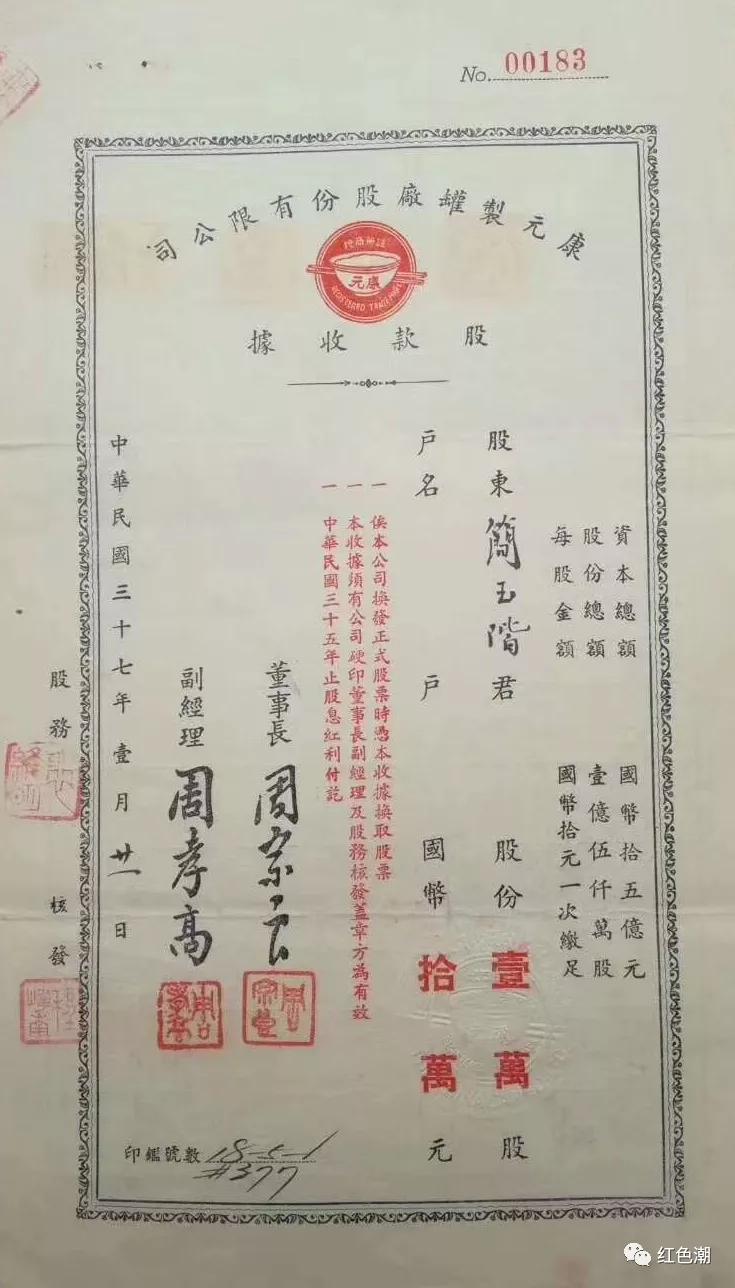 No. 00183
康元製罐廠股份有限公司
註冊商標
康元
REGISTERED TRADE MARK
股款收據
資本總額 國幣拾五億元
股份總額 壹億伍仟萬股
每股金額 國幣拾元一次繳足
股東簡玉階君 股份壹萬股
戶名 戶 國幣拾萬元
一 俟本公司換發正式股票時憑本收據換取股票
一 本收據須有公司硬印董事長副經理及股務核發蓋章方為有效
一 中華民國三十五年止股息紅利付訖
董事長 周
副經理 周孝高
中華民國三十七年壹月廿一日
股務 核發
印鑑號數 18-5-1
#377
红色潮